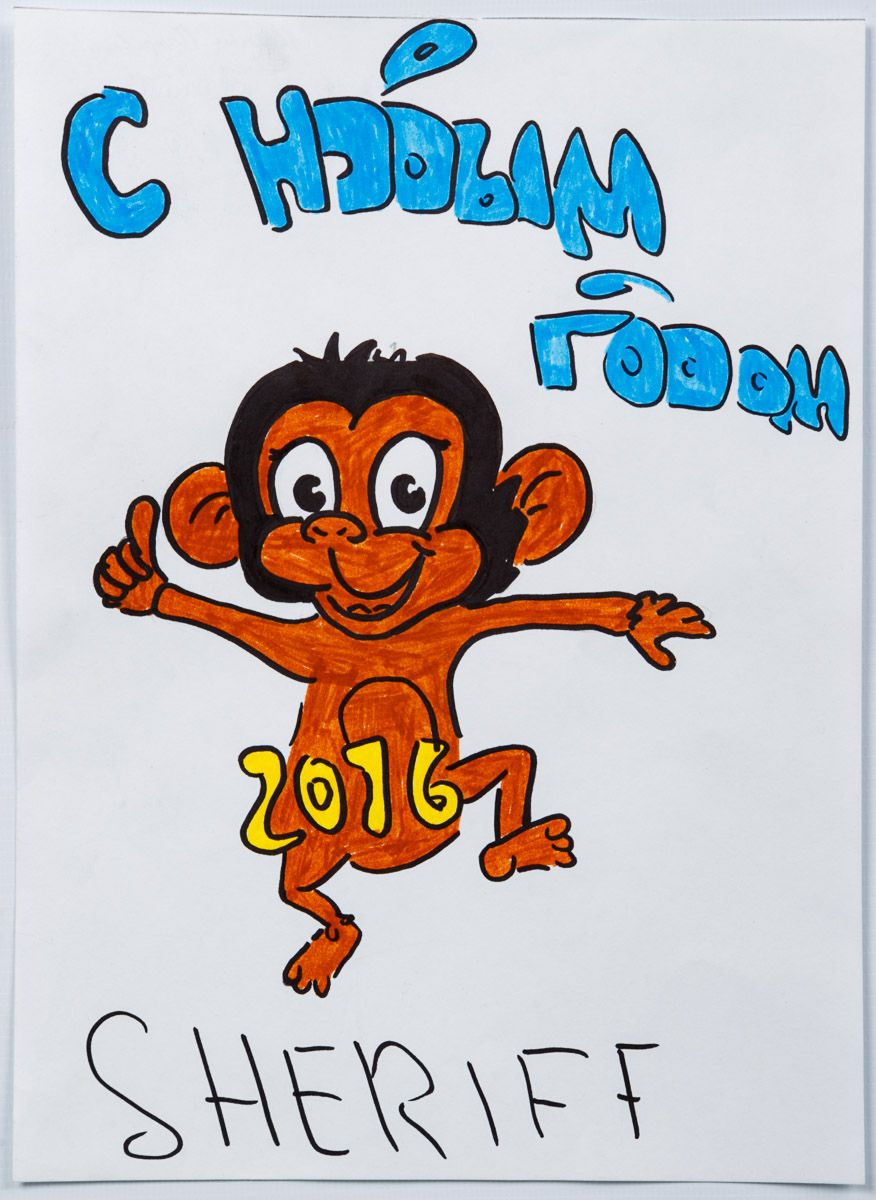 С НОВЫМ
ГОДОМ
2016
SHERIFF